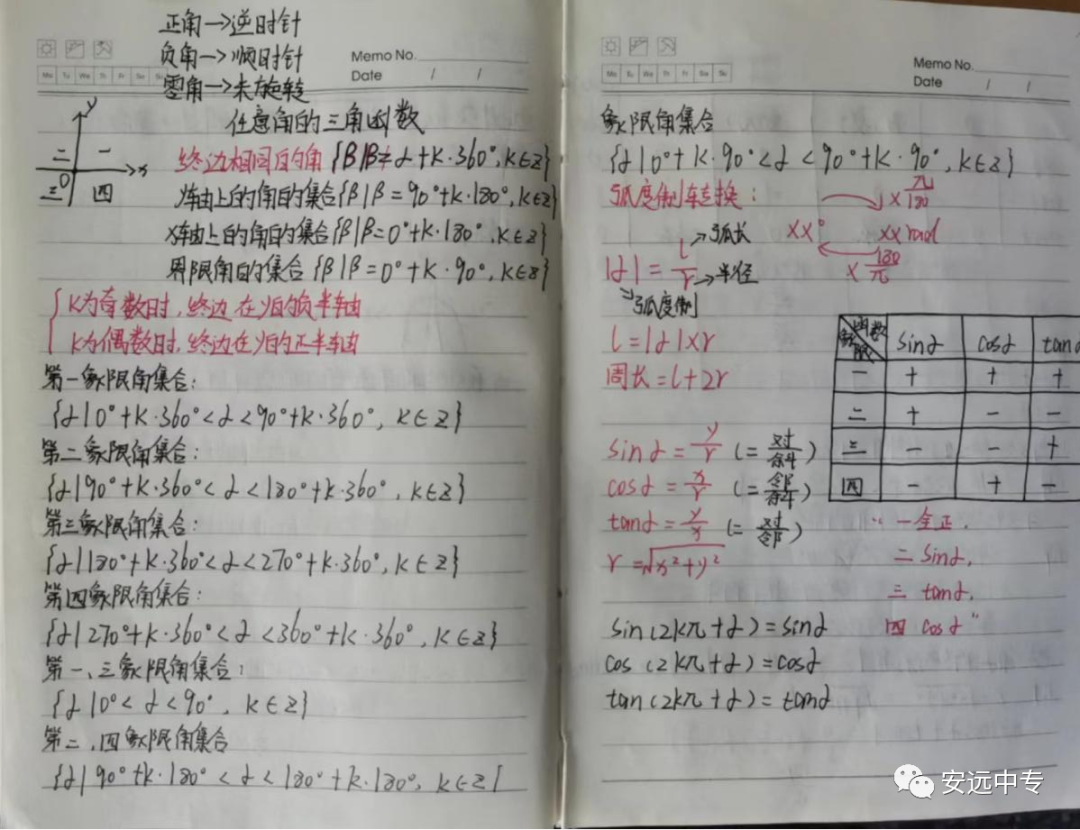 正角→逆时针
负角→顺时针
零角→未旋转
Memo No.
Mo Tu We Th Fr Sa Su
Date / /
任意角的三角函数
y
二 一
x
三 0 四
终边相同的角{β|β=α+k·360°,k∈Z}
y轴上的角的集合{β|β=90°+k·180°,k∈Z}
x轴上的角的集合{β|β=0°+k·180°,k∈Z}
界限角的集合{β|β=0°+k·90°,k∈Z}
{k为奇数时,终边在y的负半轴
k为偶数时,终边在y的正半轴
第一象限角集合:
{α|0°+k·360°<α<90°+k·360°,k∈Z}
第二象限角集合:
{α|90°+k·360°<α<180°+k·360°,k∈Z}
第三象限角集合:
{α|180°+k·360°<α<270°+k·360°,k∈Z}
第四象限角集合:
{α|270°+k·360°<α<360°+k·360°,k∈Z}
第一、三象限角集合:
{α|0°<α<90°,k∈Z}
第二、四象限角集合
{α|90°+k·180°<α<180°+k·180°,k∈Z}
Memo No.
Mo Tu We Th Fr Sa Su
Date / /
象限角集合
{α|0°+k·90°<α<90°+k·90°,k∈Z}
弧度制转换: ×π/180
xx° xx rad
×180/π
|α|=l/r →弧长 →半径
→弧度制
l=|α|×r
周长=l+2r
函数 象限 sinα cosα tanα
一 + + +
二 + - -
三 - - +
四 - + -
sinα=y/r(=对/斜)
cosα=x/r(=邻/斜)
tanα=y/x(=对/邻)
r=√x²+y²
“一全正,
二sinα,
三tanα,
四cosα”
sin(2kπ+α)=sinα
cos(2kπ+α)=cosα
tan(2kπ+α)=tanα
安远中专